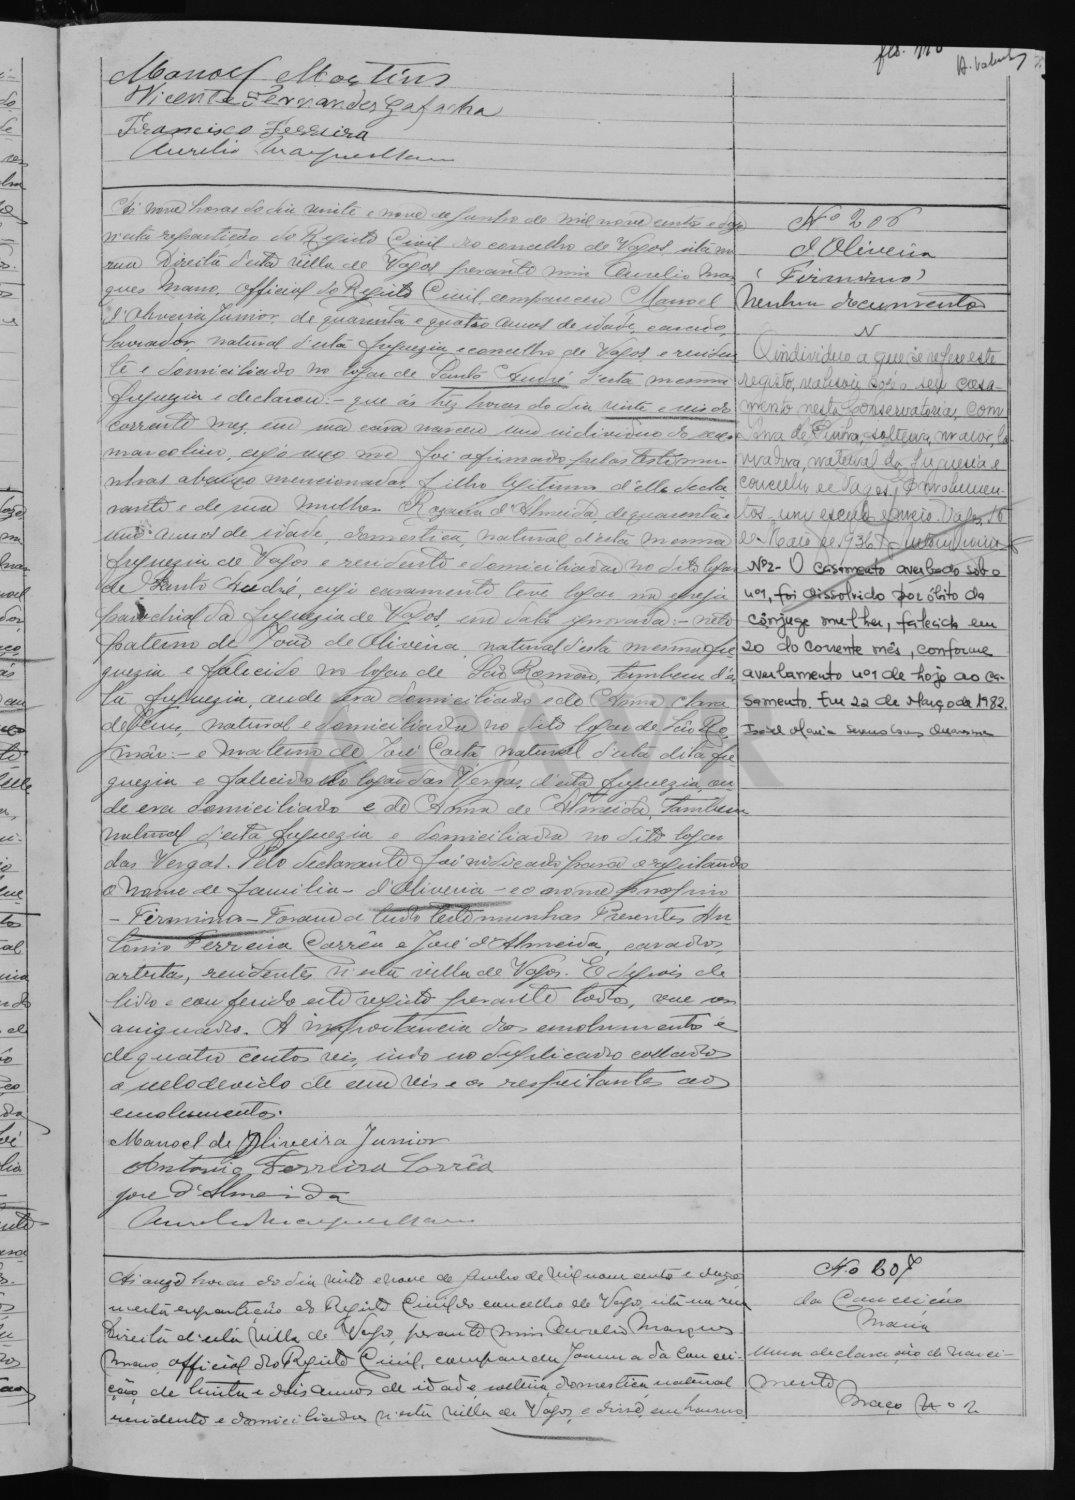 fls. 116
Manoel Martins
Vicente Fernandes Zafacha
Francisco Ferreira
Aurelio Marques Mano
Ás nove horas do dia vinte e nove de Junho de mil nove centos e doze
n'esta repartição do Registo Civil do concelho de Vagos, sita na
rua Direita d'esta villa de Vagos perante mim Aurelio Mar
ques Mano, official do Registo Civil, compareceu Manoel
d'Oliveira Junior, de quarenta e quatro annos de idade, casado,
lavrador, natural d'esta freguezia e concelho de Vagos e residen
te e domiciliado no logar de Santo André d'esta mesma
freguezia e declarou: - que ás trez horas do dia vinte e seis do
corrente mez, em sua casa nasceu um individuo do sexo
masculino, cujo sexo me foi afirmado pelas testemu-
nhas abaixo mencionadas, filho legitimo d'elle decla
rante e de sua mulher Rozaria d'Almeida, de quarenta e
annos de idade, domestica, natural d'esta mesma
freguezia de Vagos e residente e domiciliada no dito logar
de Santo André, cujo casamento teve logar na igreja
parochial da freguezia de Vagos, em data ignorada: - neto
paterno de João de Oliveira, natural d'esta mesma fre
guezia e falecido no logar de São Romão, tambem d'es
ta freguezia, aonde era domiciliado e de Anna Clara
de Jesus, natural e domiciliada no dito logar de São Ro
mão: - e materno de José Carta natural d'esta dita fre
guezia e falecido no logar das Vergas, d'esta freguezia, on
de era domiciliado e de Anna de Almeida, tambem
natural d'esta freguezia e domiciliada no dito logar
das Vergas. Pelo declarante foi indicado para o registando
o nome de familia - d'Oliveira - e o nome proprio
- Firmino - Foram a tudo testemunhas Presentes An
tonio Ferreira Corrêa e José d'Almeida, casados,
artistas, residentes n'esta villa de Vagos. E depois de
lido e conferido este registo perante todos, vae ser
assignado. A importancia dos emolumentos é
de quatro centos reis, indo no duplicado collados
o sello devido de cem reis e os respeitantes aos
emolumentos.
Manoel de Oliveira Junior
Antonio Ferreira Corrêa
José d'Almeida
Aurelio Marques Mano
Nº 206
d'Oliveira
(Firmino)
Nenhum documento
N
O individuo a que se refere este
registo, realisou hoje o seu casa-
mento nesta Conservatoria, com
de Pinho, solteira, maior, la
vradora, natural da freguesia e
concelho de Vagos. Emolumen-
tos - um escudo e meio. Vagos, 16
de Maio de 1936.
Nº2- O casamento averbado sob o
nº1, foi dissolvido por óbito da
cônjuge mulher, falecida em
20 do corrente mês, conforme
averbamento nº1 de hoje ao ca-
samento. Em 22 de Março de 1982.
Ás onze horas do dia vinte e nove de Junho de mil nove centos e doze
n'esta repartição do Registo Civil do concelho de Vagos, sita na rua
Direita d'esta villa de Vagos, perante mim Aurelio Marques
Mano, official do Registo Civil, compareceu Joanna da Concei-
ção, de trinta e dois annos de idade, solteira, domestica, natural
residente e domiciliada n'esta villa de Vagos, e disse, em
No 207
da Conceição
Maria
Uma declaração de nasci-
mento
Maço Nº 2